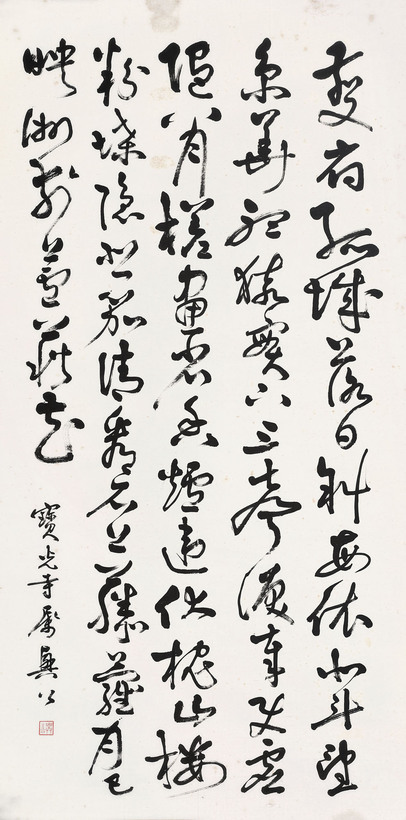 夔府孤城落日斜每依北斗望
京華聽猿實下三聲淚奉使虛
隨八月槎畫省香爐違伏枕山樓
粉堞隱悲笳請看石上藤蘿月已
映洲前蘆荻花
寶光寺